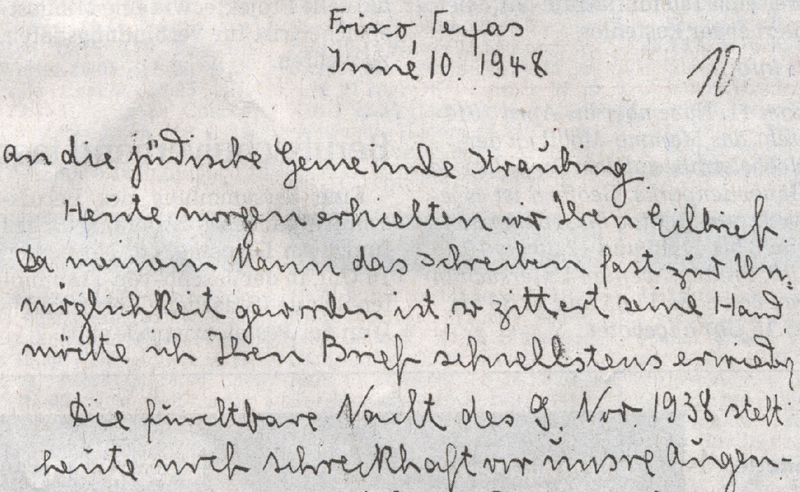 Frisco, Texas
June 10. 1948
10
An die jüdische Gemeinde Straubing
Heute morgen erhielten wir Ihren Eilbrief
Da meinem Mann das Schreiben fast zur Un-
möglichkeit geworden ist, so zittert seine Hand
möchte ich Ihren Brief schnellstens erwiedern
Die furchtbare Nacht des 9. Nov. 1938 steht
heute noch schreckhaft vor unsre Augen-